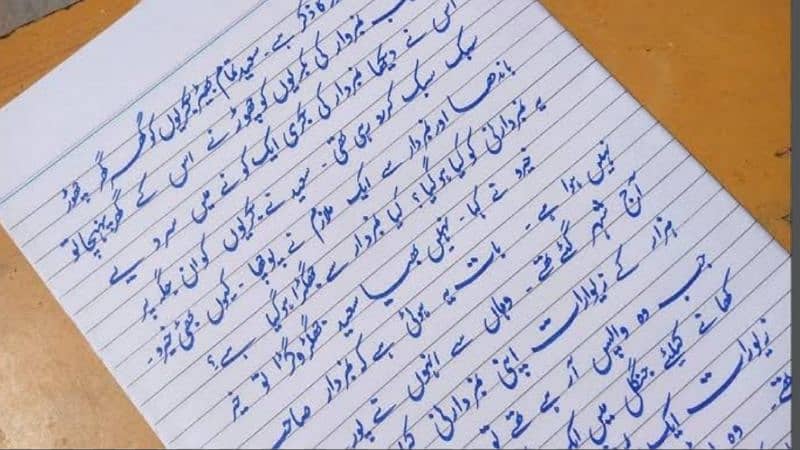 کا ذکر ہے۔ سعید تمام بھیڑ بکریوں کو گھر گھر چھوڑ
نمبردار کی بکریوں کو چھوڑنے اس کے گھر پہنچا تو
اس نے دیکھا نمبردار کی بکری ایک کونے میں سر دیے
سبک سبک کر رو رہی تھی۔ سعید نے بکریوں کو ان جگہ پر
باندھا اور نمبردار سے ایک ملازم نے پوچھا۔ کیوں بھئی خیرو۔
یہ نمبردارنی کو کیا ہو گیا؟ کیا نمبردار سے جھگڑا ہو گیا ہے؟
خیرو نے کہا۔ نہیں بھیا سعید جھگڑا وگڑا تو خیر
نہیں ہوا ہے۔ بات یہ ہوئی ہے کہ نمبردار صاحب
آج شہر گئے تھے۔ وہاں سے انہوں نے پورے
ہزار کے زیورات اپنی نمبردارنی
جب وہ واپس آ رہے تھے تو
کھانے کیلئے جنگل میں ایک
زیورات ایک
تھے۔ وہ